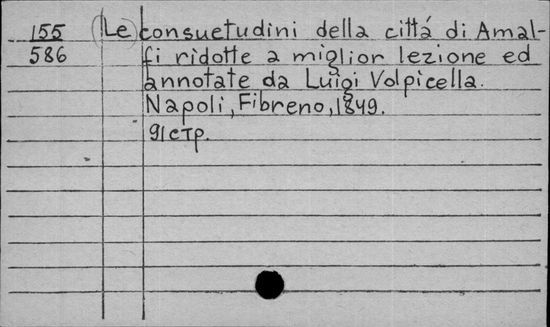 155 (Le) consuetudini della cittá di Amal-
586 fi ridotte a miglior lezione ed
annotate da Luigi Volpicella.
Napoli, Fibreno, 1849.
91 стр.